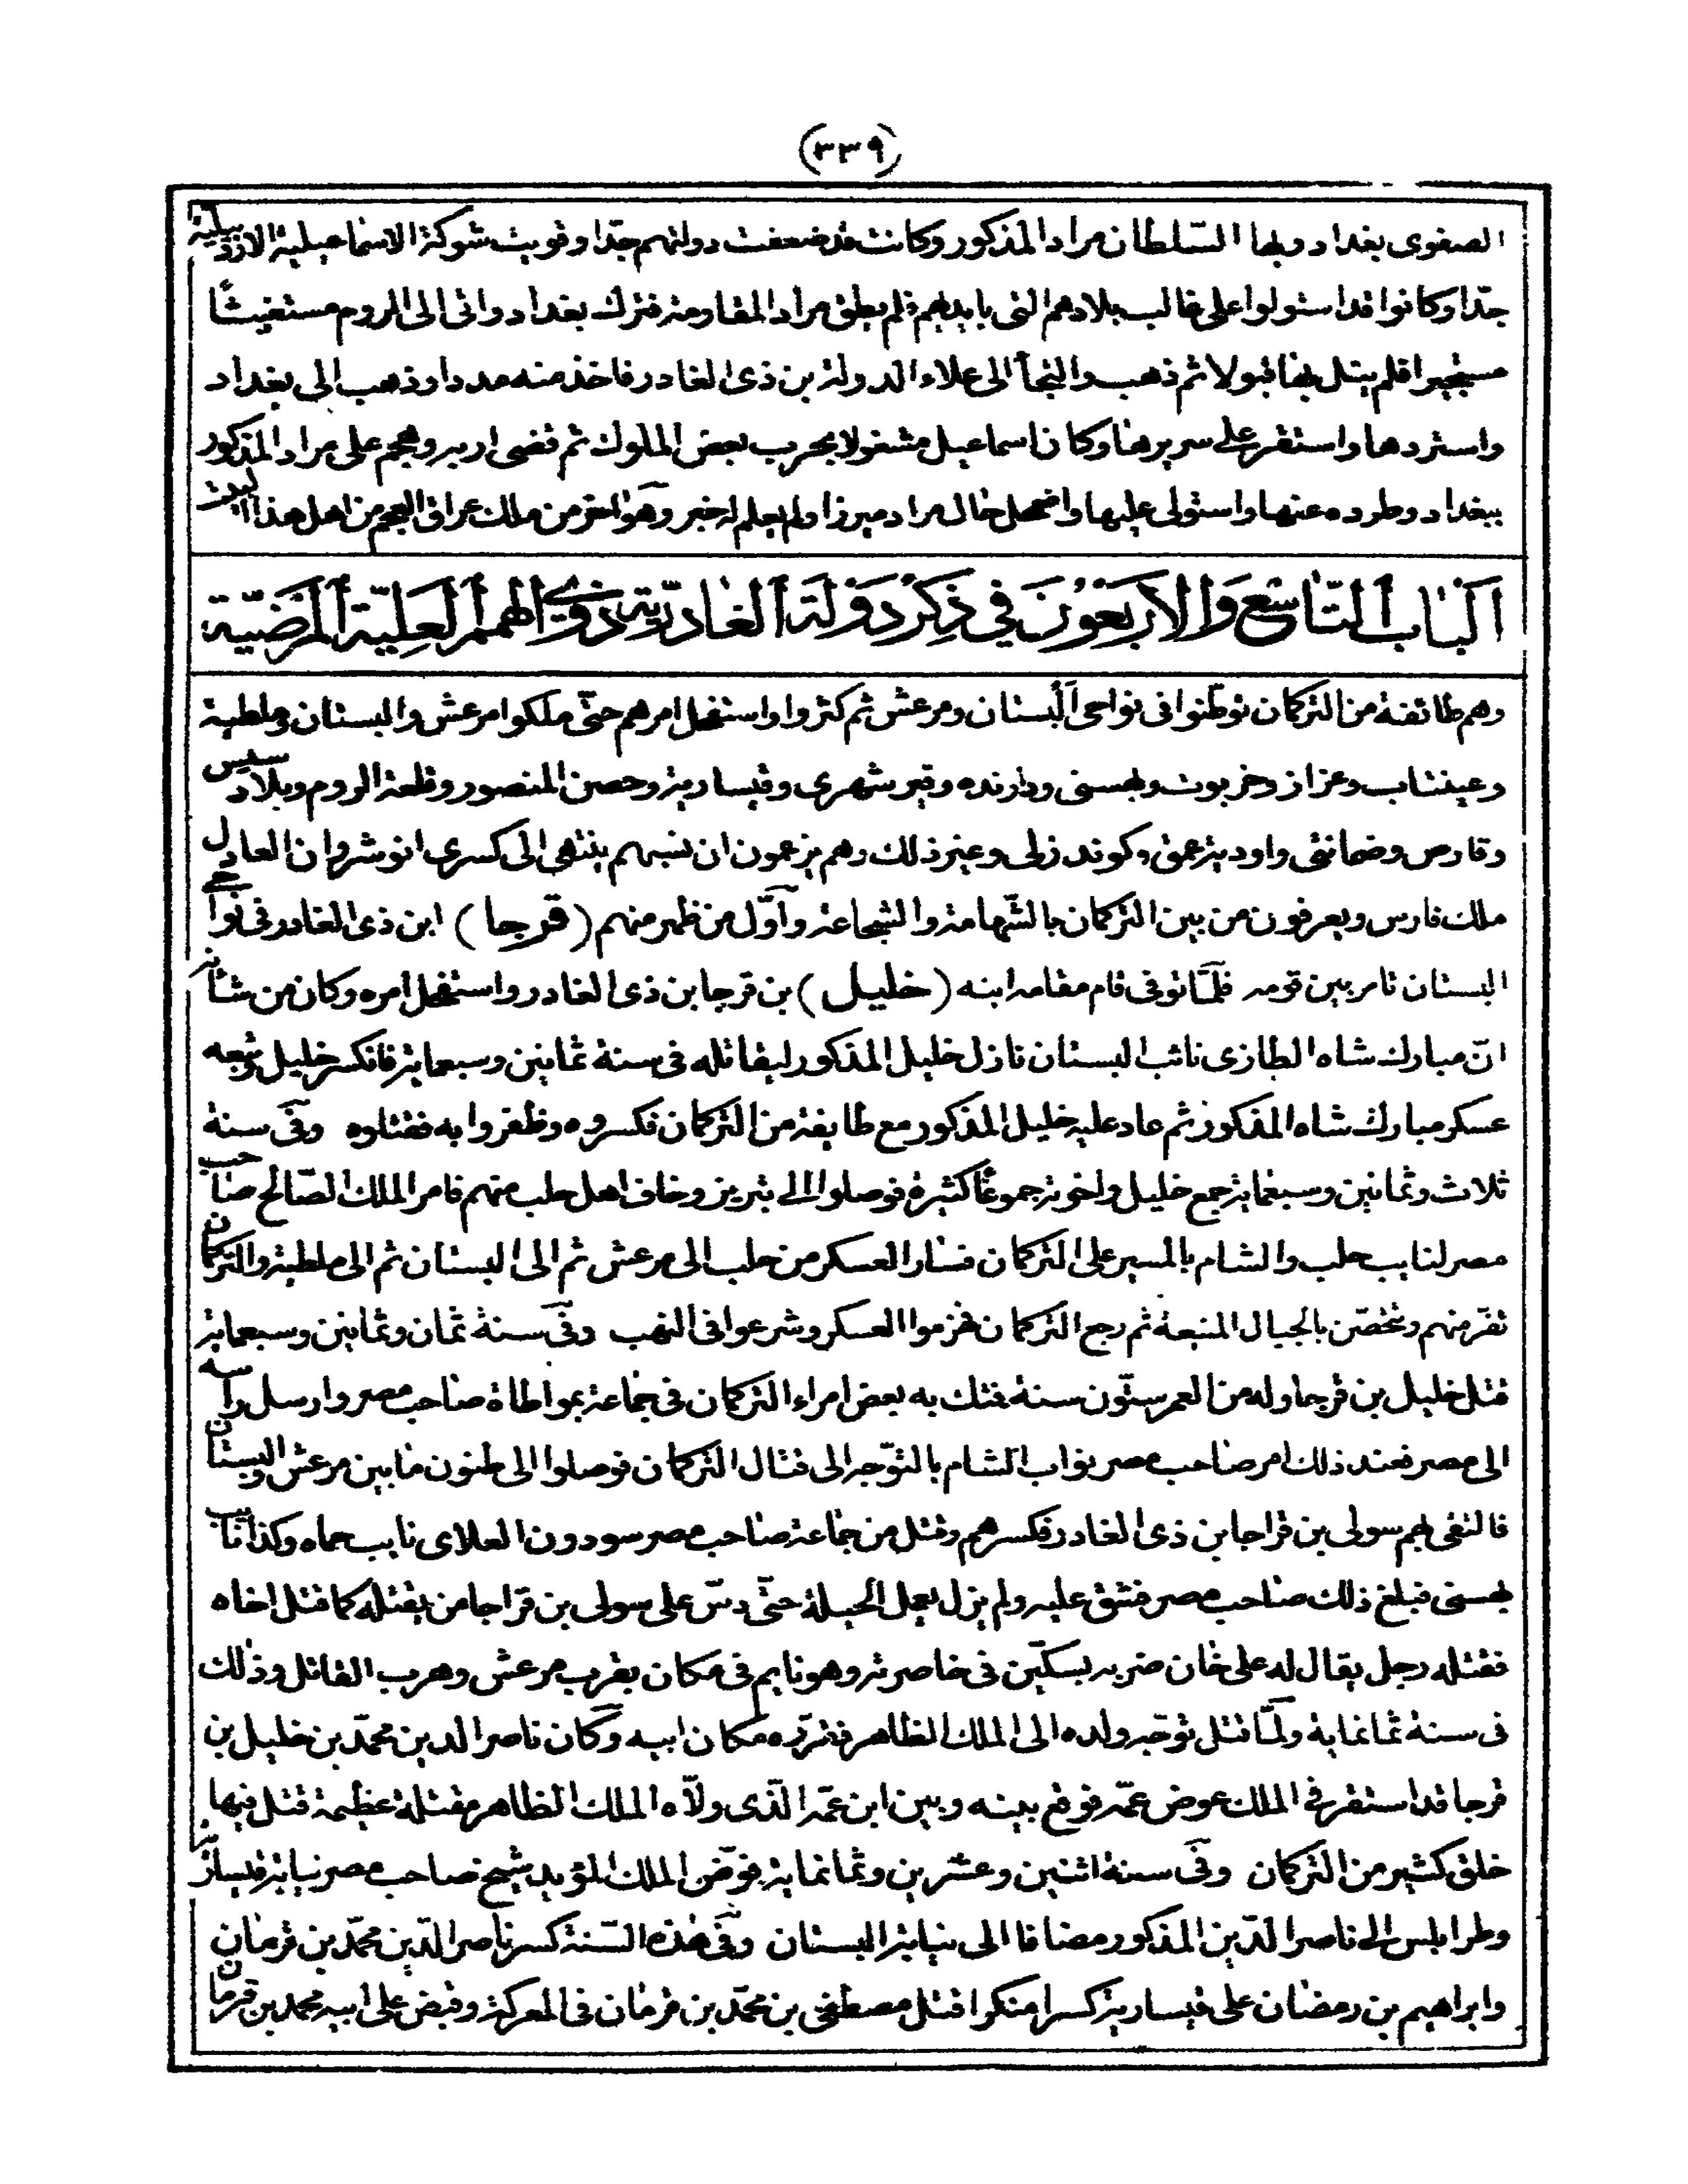 (٣٣٩)
الصفوى بغداد وبها السّلطان مراد المذكور وكانت قد ضعفت دولتهم جدّا وقويت شوكة الاسماعيلية الاردبيلية
جدّا وكانوا قد استولوا على غالب بلادهم التى بايديهم فلم يطق مراد المقاومة فترك بغداد واتى الى الروم مستغيثًا
مستجيرا فلم ينل بها قبولا ثم ذهب والتجأ الى علاء الدولة بن ذى الغادر فاخذ منه مددا وذهب الى بغداد
واستردها واستقر على سريرها وكان اسماعيل مشغولا بحرب بعض الملوك ثم قضى اربه وهجم على مراد المذكور
ببغداد وطرده عنها واستولى عليها واضمحل حال مراد ميرزا ولم يعلم له خبر وهو آخر من ملك عراق العجم من اهل هذا البيت
اَلْبَابُ التَّاسِعُ وَالْاَرْبَعُوْنَ فِي ذِكْرِ دَوْلَةِ الغَادِرِيَّةِ ذَوِي الهِمَمِ العَلِيَّةِ المَرْضِيَّةِ
وهم طائفة من التركمان توطّنوا فى نواحى اَلْبستان ومرعش ثم كثروا واستفحل امرهم حتّى ملكوا مرعش والبستان وملطية
وعينتاب وعزاز وخربوت وبهسنى ودارنده وقير شهرى وقيسارية وحصن المنصور وقلعة الروم وبلاد سيس
وقارص وضمانتى واودية عمق وكوندزلى وغير ذلك وهم يزعمون ان نسبهم ينتهى الى كسرى انوشروان العادل
ملك فارس ويعرفون من بين التركمان بالشّهامة والشجاعة وآوّل من ظهر منهم (قرجا) ابن ذى الغادر فى نواحى
البستان تامر بين قومه فلمّا توفى قام مقامه ابنه (خليل) بن قرجا بن ذى الغادر واستفحل امره وكان من شانه
انّ مبارك شاه الطازى نائب البستان نازل خليل المذكور ليقاتله فى سنة ثمانين وسبعماية فانكسر خليل وتوجه
عسكر مبارك شاه المذكور ثم عاد عليه خليل المذكور مع طايفة من التركمان فكسروه وظفروا به فقتلوه وفى سنة
ثلاث وثمانين وسبعماية جمع خليل واخوته جموعًا كثيرة فوصلوا الى تبريز وخاف اهل حلب منهم فامر الملك الصّالح صاحب
مصر لنايب حلب والشام بالمسير على التركمان فسار العسكر من حلب الى مرعش ثم الى البستان ثم الى ملطية والتركمان
تفر منهم وتتحصّن بالجبال المنيعة ثم رجع التركمان فهزموا العسكر وشرعوا فى النهب وفى سنة ثمان وثمانين وسبعماية
قتل خليل بن قرجا وله من العمر ستّون سنة فتك به بعض امراء التركمان فى جماعة بمواطاة صاحب مصر وارسل راسه
الى مصر فعند ذلك امر صاحب مصر نواب الشام بالتوّجه الى قتال التركمان فوصلوا الى طنون ما بين مرعش والبستان
فالتقى بهم سولى بن قراجا بن ذى الغادر فكسرهم وقتل من جماعة صاحب مصر سودون العلاى نايب حماه وكذا نايب
بهسنى فبلغ ذلك صاحب مصر فشق عليه ولم يزل يعمل الحيلة حتّى دسّ على سولى بن قراجا من يقتله كما قتل اخاه
فقتله رجل يقال له على خان ضربه بسكّين فى خاصرته وهو نايم فى مكان بقرب مرعش وهرب القاتل وذلك
فى سنة ثمانماية ولمّا قتل توجّه ولده الى الملك الظاهر فقرّره مكان ابيه وكان ناصر الدين محمّد بن خليل بن
قرجا قد استقر فى الملك عوض عمّه فوقع بينه وبين ابن عمّه الّذى ولاّه الملك الظاهر مقتلة عظيمة قتل فيها
خلق كثير من التركمان وفى سنة اثنين وعشرين وثمانماية فوّض الملك المؤيد شيخ صاحب مصر نيابة قيسارية
وطرابلس الى ناصر الدّين المذكور مضافا الى نيابة البستان وفى هذه السّنة كسر ناصر الدّين محمّد بن قرمان
وابراهيم بن رمضان على قيسارية كسرا منكرا قتل مصطفى بن محمّد بن قرمان فى المعركة وقبض على ابيه محمد بن قرمان